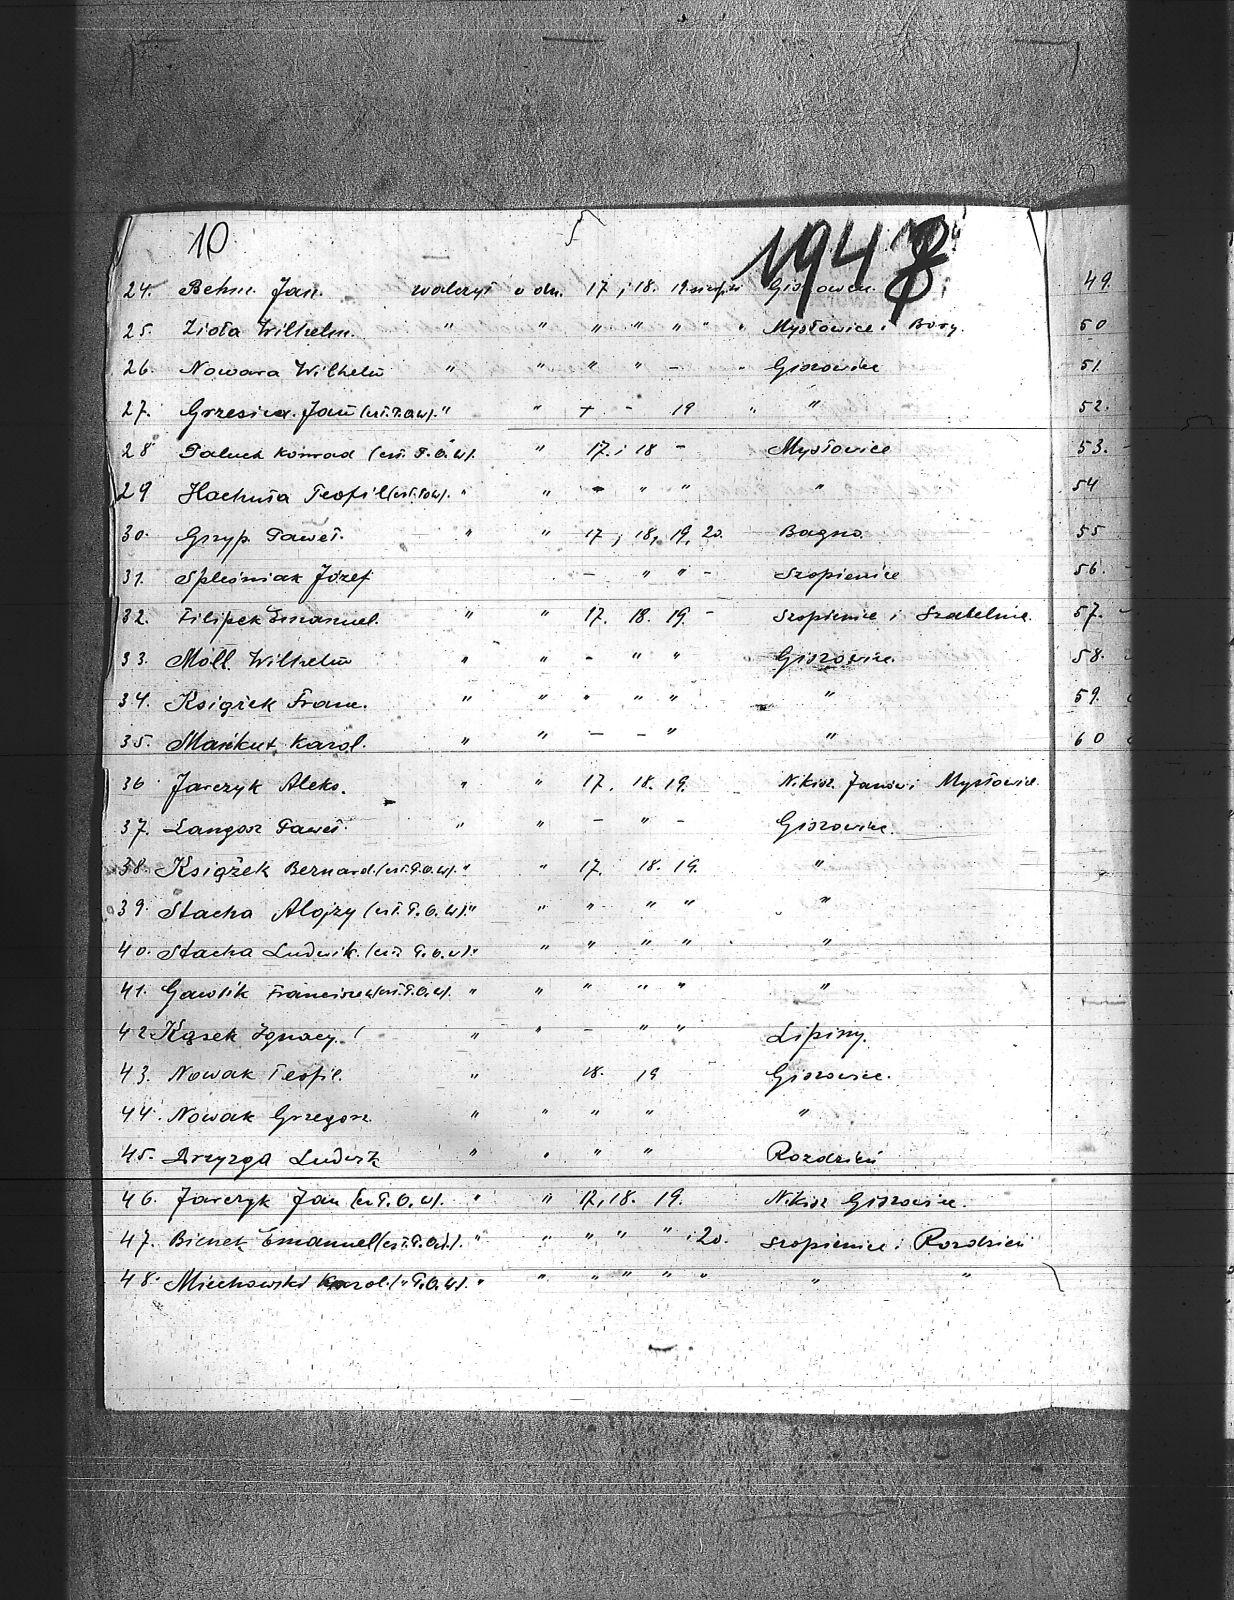 10
1947
24. Behm. Jan. walczył w dn. 17, i 18. 19 sierp. w Giszowcu. 49.
25. Zioła Wilhelm. " " " " " " " Mysłowice i Bory. 50
26. Nowara Wilhelm " " " " - " Giszowiec 51
27. Grzesica. Jan (czł. P.O.W.). " " + - 19 " " 52.
28 Paluch Konrad (czł. P.O.W). " 17. i 18 - Mysłowice 53. -
29 Hachuła Teofil (czł. P.O.W). " " - " " " 54
30. Gryp. Paweł. " " 17, i 18, 19, 20. Bagno. 55
31. Spleśniak Józef - " " - Szopienice 56. -
32. Filipek Emanuel. " " 17. 18. 19. - Szopienice i Szabelnia. 57. -
33. Moll. Wilhelm " " - " " Giszowiec. 58.
34. Książek Franc. " " " " " " 59.
35. Markut. Karol. " " - - " " 60
36. Jarczyk Aleks. " " 17. 18. 19. Nikisz. Janów i Mysłowice.
37. Langosz Paweł. " " - " - Giszowiec.
38. Książek Bernard. (czł. P.O.W). " " 17. 18. 19. "
39. Stacha Alojzy (czł. P.O.W). " " " " " "
40. Stacha Ludwik. (czł. P.O.W). " " " " " "
41. Gawlik Franciszek (czł. P.O.W). " " " " " "
42 Kąsek Ignacy. " " - " " Lipiny.
43. Nowak Teofil. " 18. 19 Giszowiec.
44. Nowak Grzegorz " " " " "
45. Drzyzga Ludwik " " " " Rozdzień
46. Jarczyk Jan (czł. P.O.W). " " 17, 18. 19. Nikisz Giszowiec.
47. Bienek Emanuel (czł. P.O.W). " " " " " i 20. Szopienice i Rozdzień
48. Miechowski Karol. (" P.O.W). " " " " " " " "